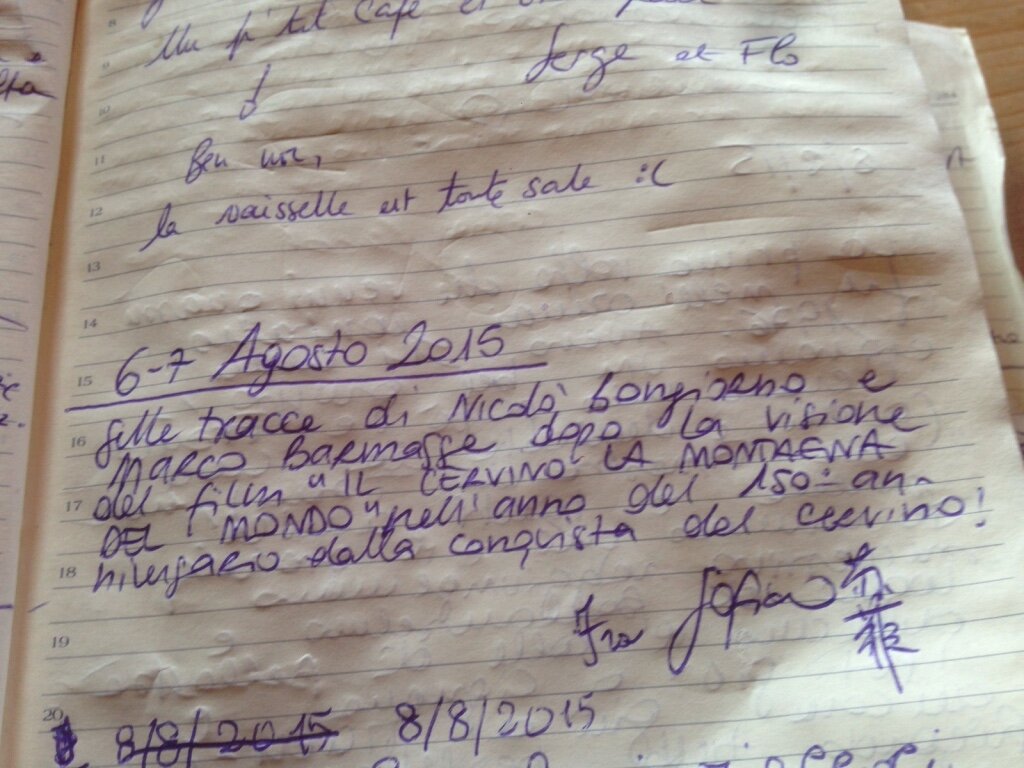 Un p'tit café et
Serge et Flo
Ben non,
la vaisselle est toute sale :(
6-7 Agosto 2015
Sulle tracce di Nicolò Bongiorno e
MARCO BARMASSE dopo la visione
del film "IL CERVINO LA MONTAGNA
DEL MONDO" nell'anno del 150° an-
niversario dalla conquista del Cervino!
Sofia 苏
菲
8/8/2015 8/8/2015
8
9
10
11
12
13
14
15
16
17
18
19
20